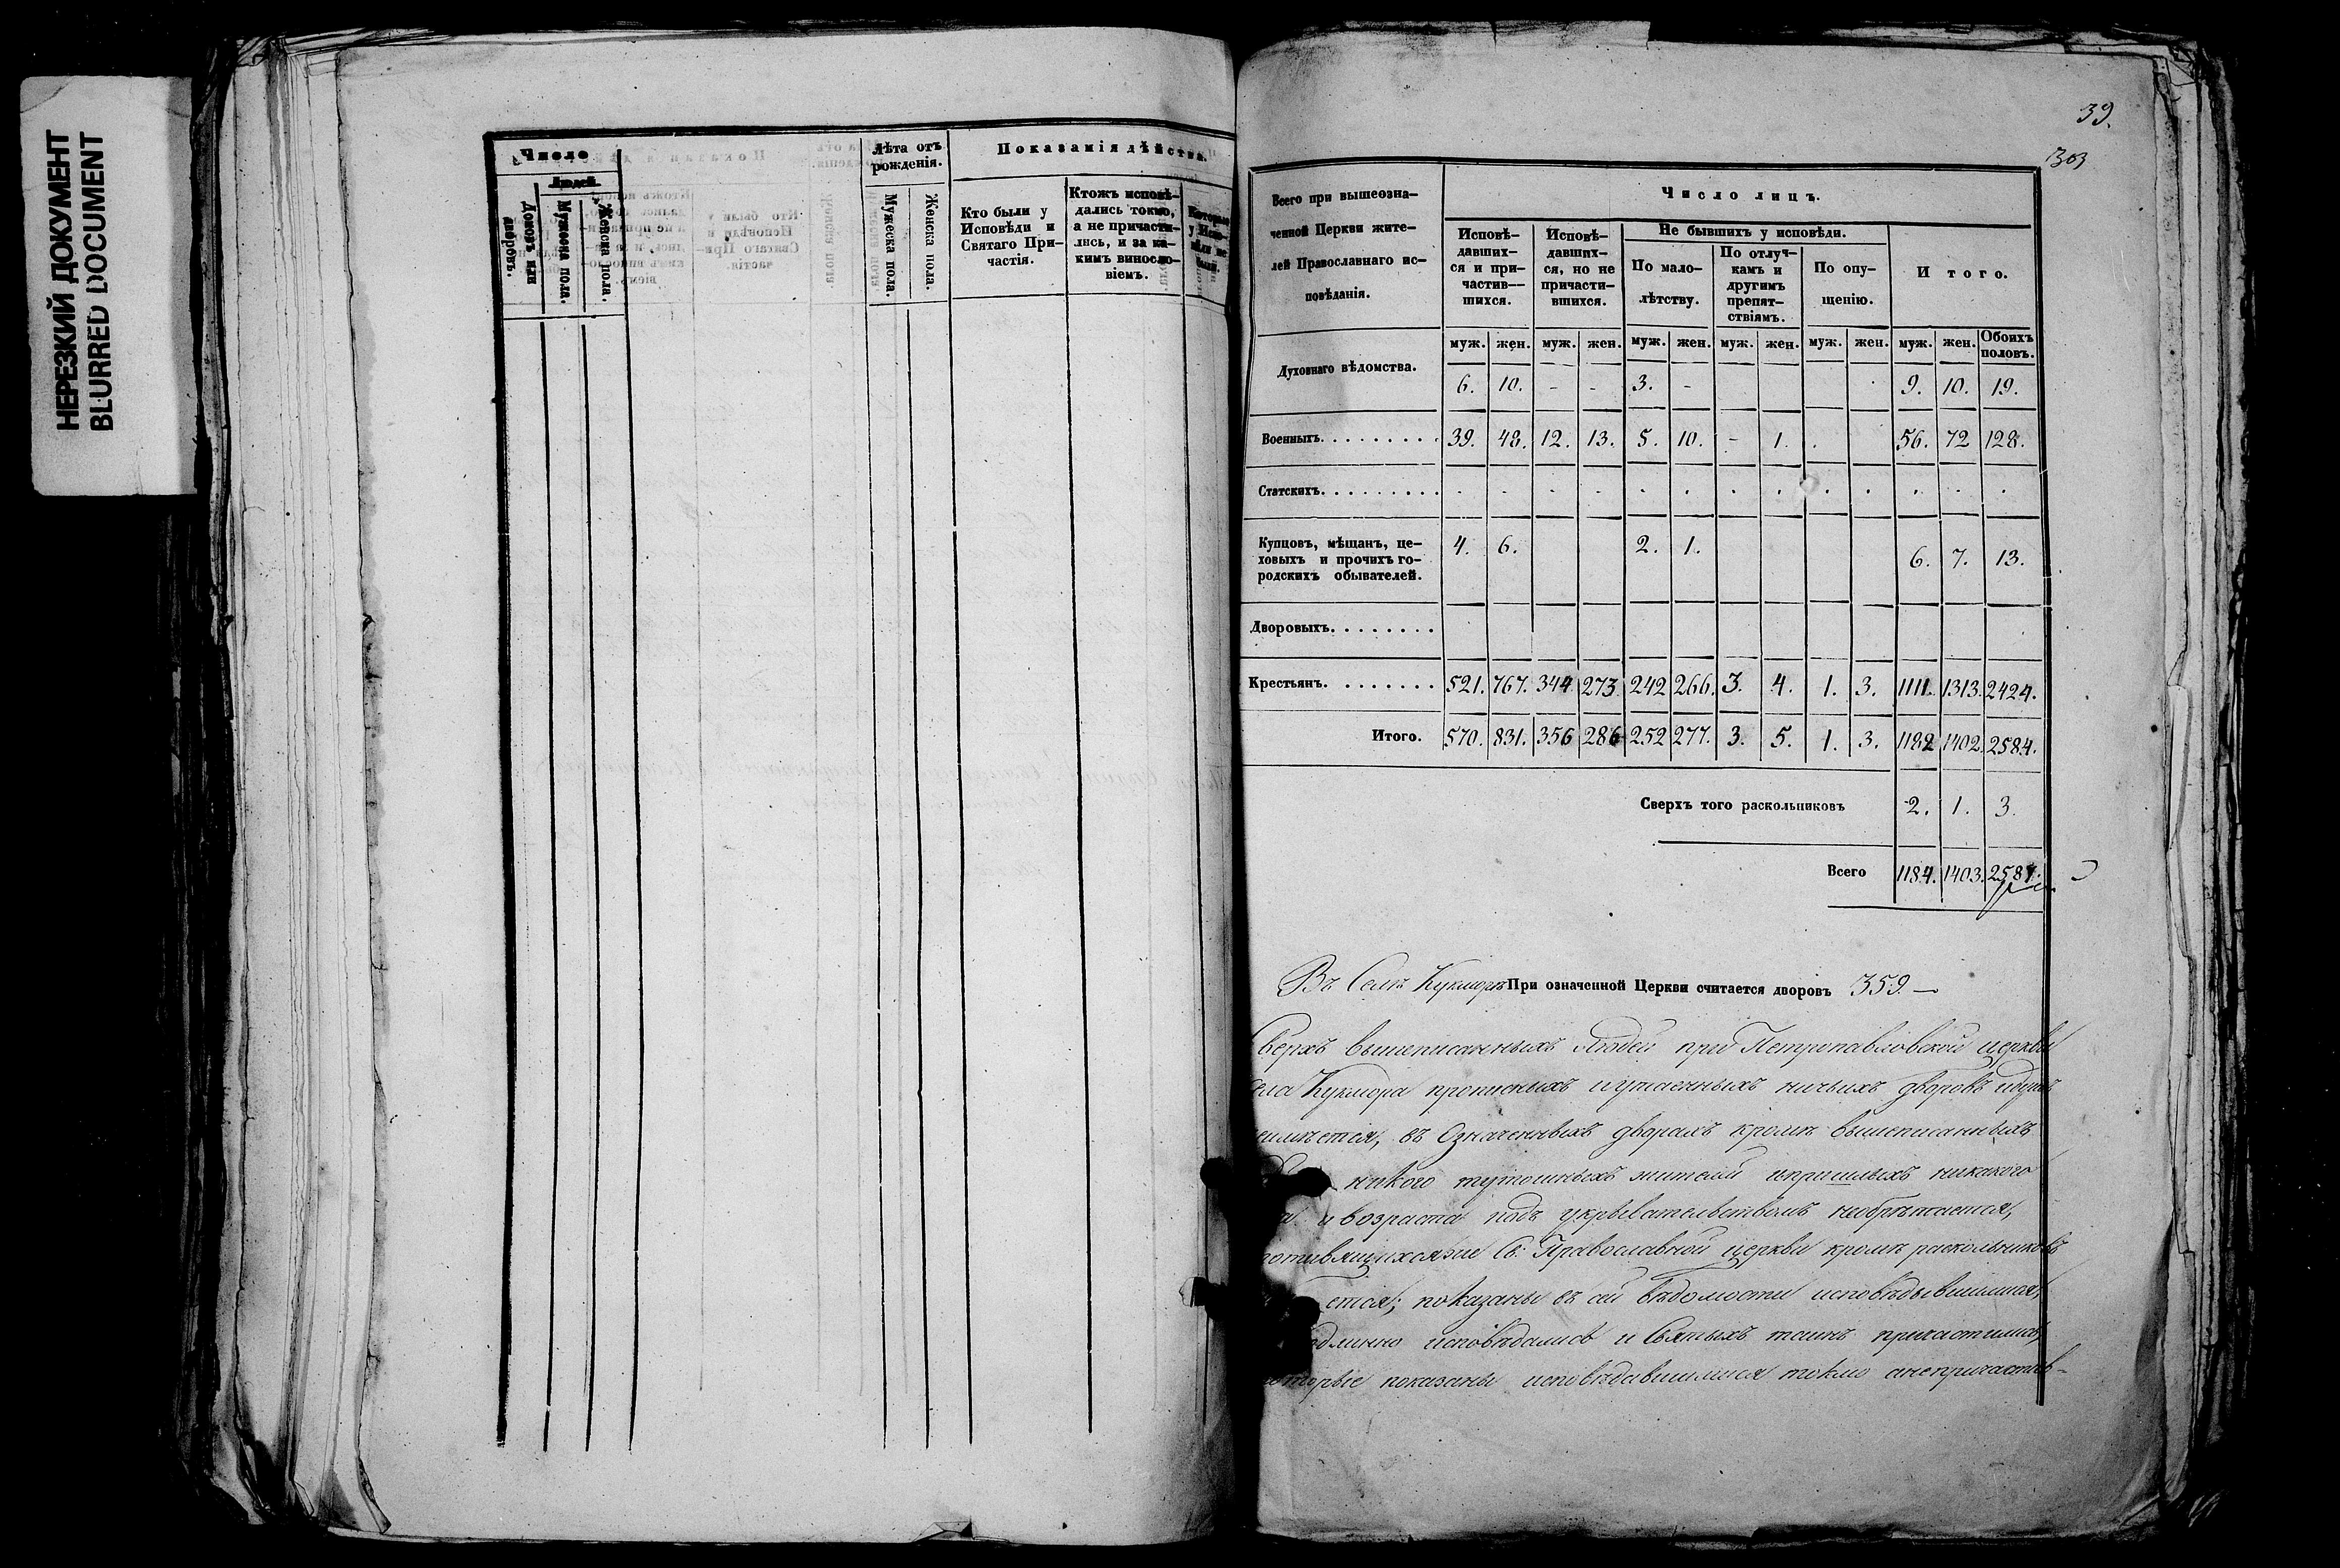 НЕРЕЗКИЙ ДОКУМЕНТ
BLURRED DOCUMENT
Число
Людей.
Домовъ или дворовъ.
Мужеска пола.
Женска пола.
Лѣта отъ рожденія.
Мужеска пола.
Женска пола.
Показанія дѣйства.
Кто были у Исповѣди и Святаго Причастія.
Ктожъ исповѣдались токмо, а не причастились, и за какимъ винословіемъ.
Которые у Исповѣди не были.
39.
303
Всего при вышеозначенной Церкви жителей Православнаго исповѣданія.
Число лицъ.
Исповѣдавшихся и причастившихся.
Исповѣдавшихся, но не причастившихся.
Не бывшихъ у исповѣди.
По малолѣтству.
По отлучкамъ и другимъ препятствіямъ.
По опущенію.
Итого.
муж. жен. муж. жен. муж. жен. муж. жен. муж. жен. муж. жен. Обоихъ половъ.
Духовнаго вѣдомства. 6. 10. - - 3. - 9. 10. 19.
Военныхъ. 39. 48. 12. 13. 5. 10. - 1. 56. 72 128.
Статскихъ.
Купцовъ, мѣщанъ, цеховыхъ и прочихъ городскихъ обывателей. 4. 6. 2. 1. 6. 7. 13.
Дворовыхъ.
Крестьянъ. 521. 767. 344 273 242 266. 3. 4. 1. 3. 1111. 1313. 2424.
Итого. 570. 831. 356 286 252 277. 3. 5. 1. 3. 1182 1402. 2584.
Сверхъ того раскольниковъ 2. 1. 3.
Всего 1184. 1403. 2587.
Въ Селѣ Кукморѣ При означенной Церкви считается дворовъ 359.—
Сверхъ вышеписанныхъ людей при Петропавловской церкви
села Кукмора прописныхъ и утаенныхъ ничьихъ дворовъ
неимѣется, въ означенныхъ дворахъ кромѣ вышеписанныхъ
никого тутошныхъ жителей и пришлыхъ никакого
и возраста подъ укрывательствомъ необрѣтается,
Св: Православной церкви кромѣ раскольниковъ
показаны въ сей вѣдомости исповѣдывшимися,
исповѣдались и Святыхъ таинъ причастились,
которые показаны исповѣдавшимися токмо анепричастив-